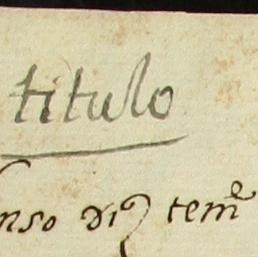 titulo
nso diz tem^e